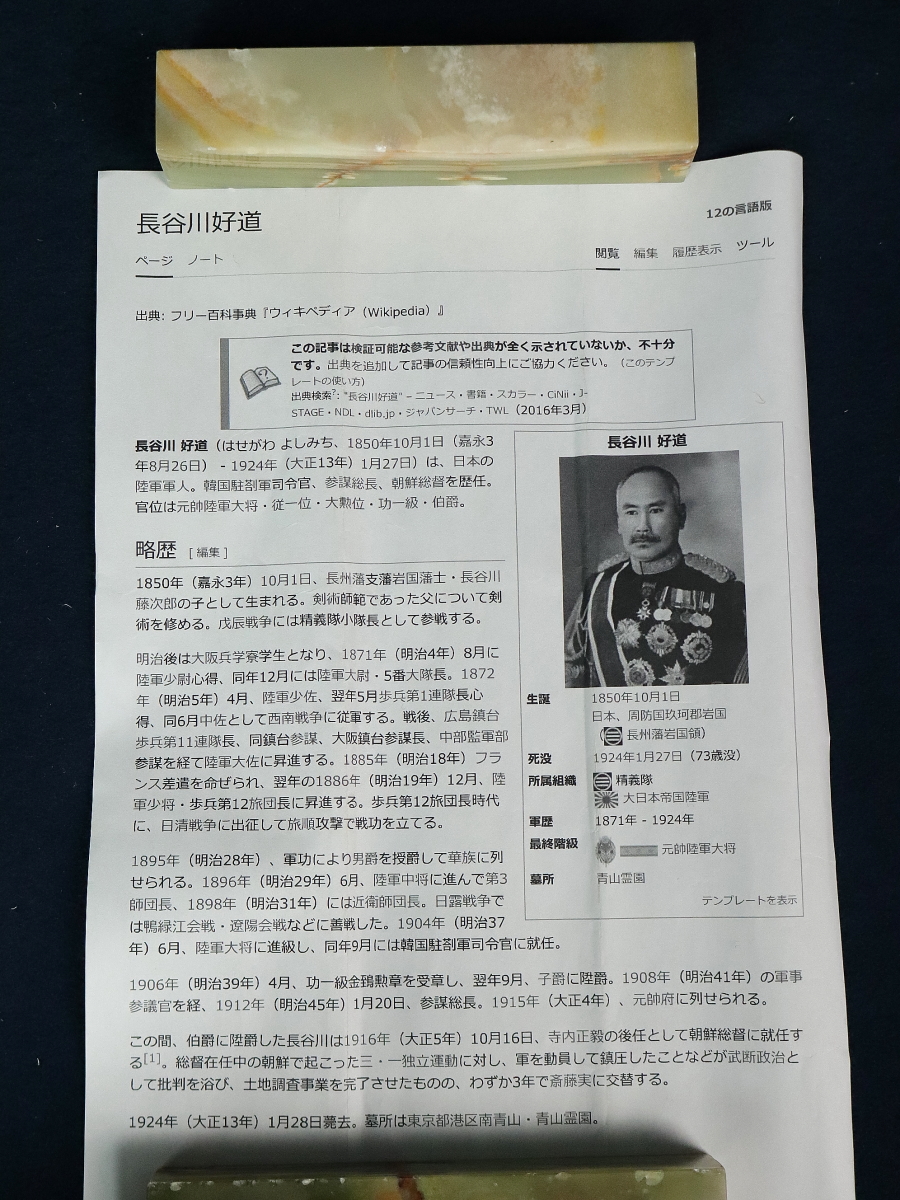 長谷川好道
12の言語版
ページ ノート
閲覧 編集 履歴表示 ツール
出典: フリー百科事典『ウィキペディア（Wikipedia）』
この記事は検証可能な参考文献や出典が全く示されていないか、不十分
です。出典を追加して記事の信頼性向上にご協力ください。（このテンプ
レートの使い方）
出典検索?: "長谷川好道" – ニュース・書籍・スカラー・CiNii・J-
STAGE・NDL・dlib.jp・ジャパンサーチ・TWL（2016年3月）
長谷川 好道（はせがわ よしみち、1850年10月1日（嘉永3
年8月26日） - 1924年（大正13年）1月27日）は、日本の
陸軍軍人。韓国駐剳軍司令官、参謀総長、朝鮮総督を歴任。
官位は元帥陸軍大将・従一位・大勲位・功一級・伯爵。
略歴 [編集]
1850年（嘉永3年）10月1日、長州藩支藩岩国藩士・長谷川
藤次郎の子として生まれる。剣術師範であった父について剣
術を修める。戊辰戦争には精義隊小隊長として参戦する。
明治後は大阪兵学寮学生となり、1871年（明治4年）8月に
陸軍少尉心得、同年12月には陸軍大尉・5番大隊長。1872
年（明治5年）4月、陸軍少佐、翌年5月歩兵第1連隊長心
得、同6月中佐として西南戦争に従軍する。戦後、広島鎮台
歩兵第11連隊長、同鎮台参謀、大阪鎮台参謀長、中部監軍部
参謀を経て陸軍大佐に昇進する。1885年（明治18年）フラ
ンス差遣を命ぜられ、翌年の1886年（明治19年）12月、陸
軍少将・歩兵第12旅団長に昇進する。歩兵第12旅団長時代
に、日清戦争に出征して旅順攻撃で戦功を立てる。
1895年（明治28年）、軍功により男爵を授爵して華族に列
せられる。1896年（明治29年）6月、陸軍中将に進んで第3
師団長、1898年（明治31年）には近衛師団長。日露戦争で
は鴨緑江会戦・遼陽会戦などに善戦した。1904年（明治37
年）6月、陸軍大将に進級し、同年9月には韓国駐剳軍司令官に就任。
1906年（明治39年）4月、功一級金鵄勲章を受章し、翌年9月、子爵に陞爵。1908年（明治41年）の軍事
参議官を経、1912年（明治45年）1月20日、参謀総長。1915年（大正4年）、元帥府に列せられる。
この間、伯爵に陞爵した長谷川は1916年（大正5年）10月16日、寺内正毅の後任として朝鮮総督に就任す
る[1]。総督在任中の朝鮮で起こった三・一独立運動に対し、軍を動員して鎮圧したことなどが武断政治と
して批判を浴び、土地調査事業を完了させたものの、わずか3年で斎藤実に交替する。
1924年（大正13年）1月28日薨去。墓所は東京都港区南青山・青山霊園。
長谷川 好道
生誕 1850年10月1日
日本、周防国玖珂郡岩国
（長州藩岩国領）
死没 1924年1月27日（73歳没）
所属組織 精義隊
大日本帝国陸軍
軍歴 1871年 - 1924年
最終階級 元帥陸軍大将
墓所 青山霊園
テンプレートを表示